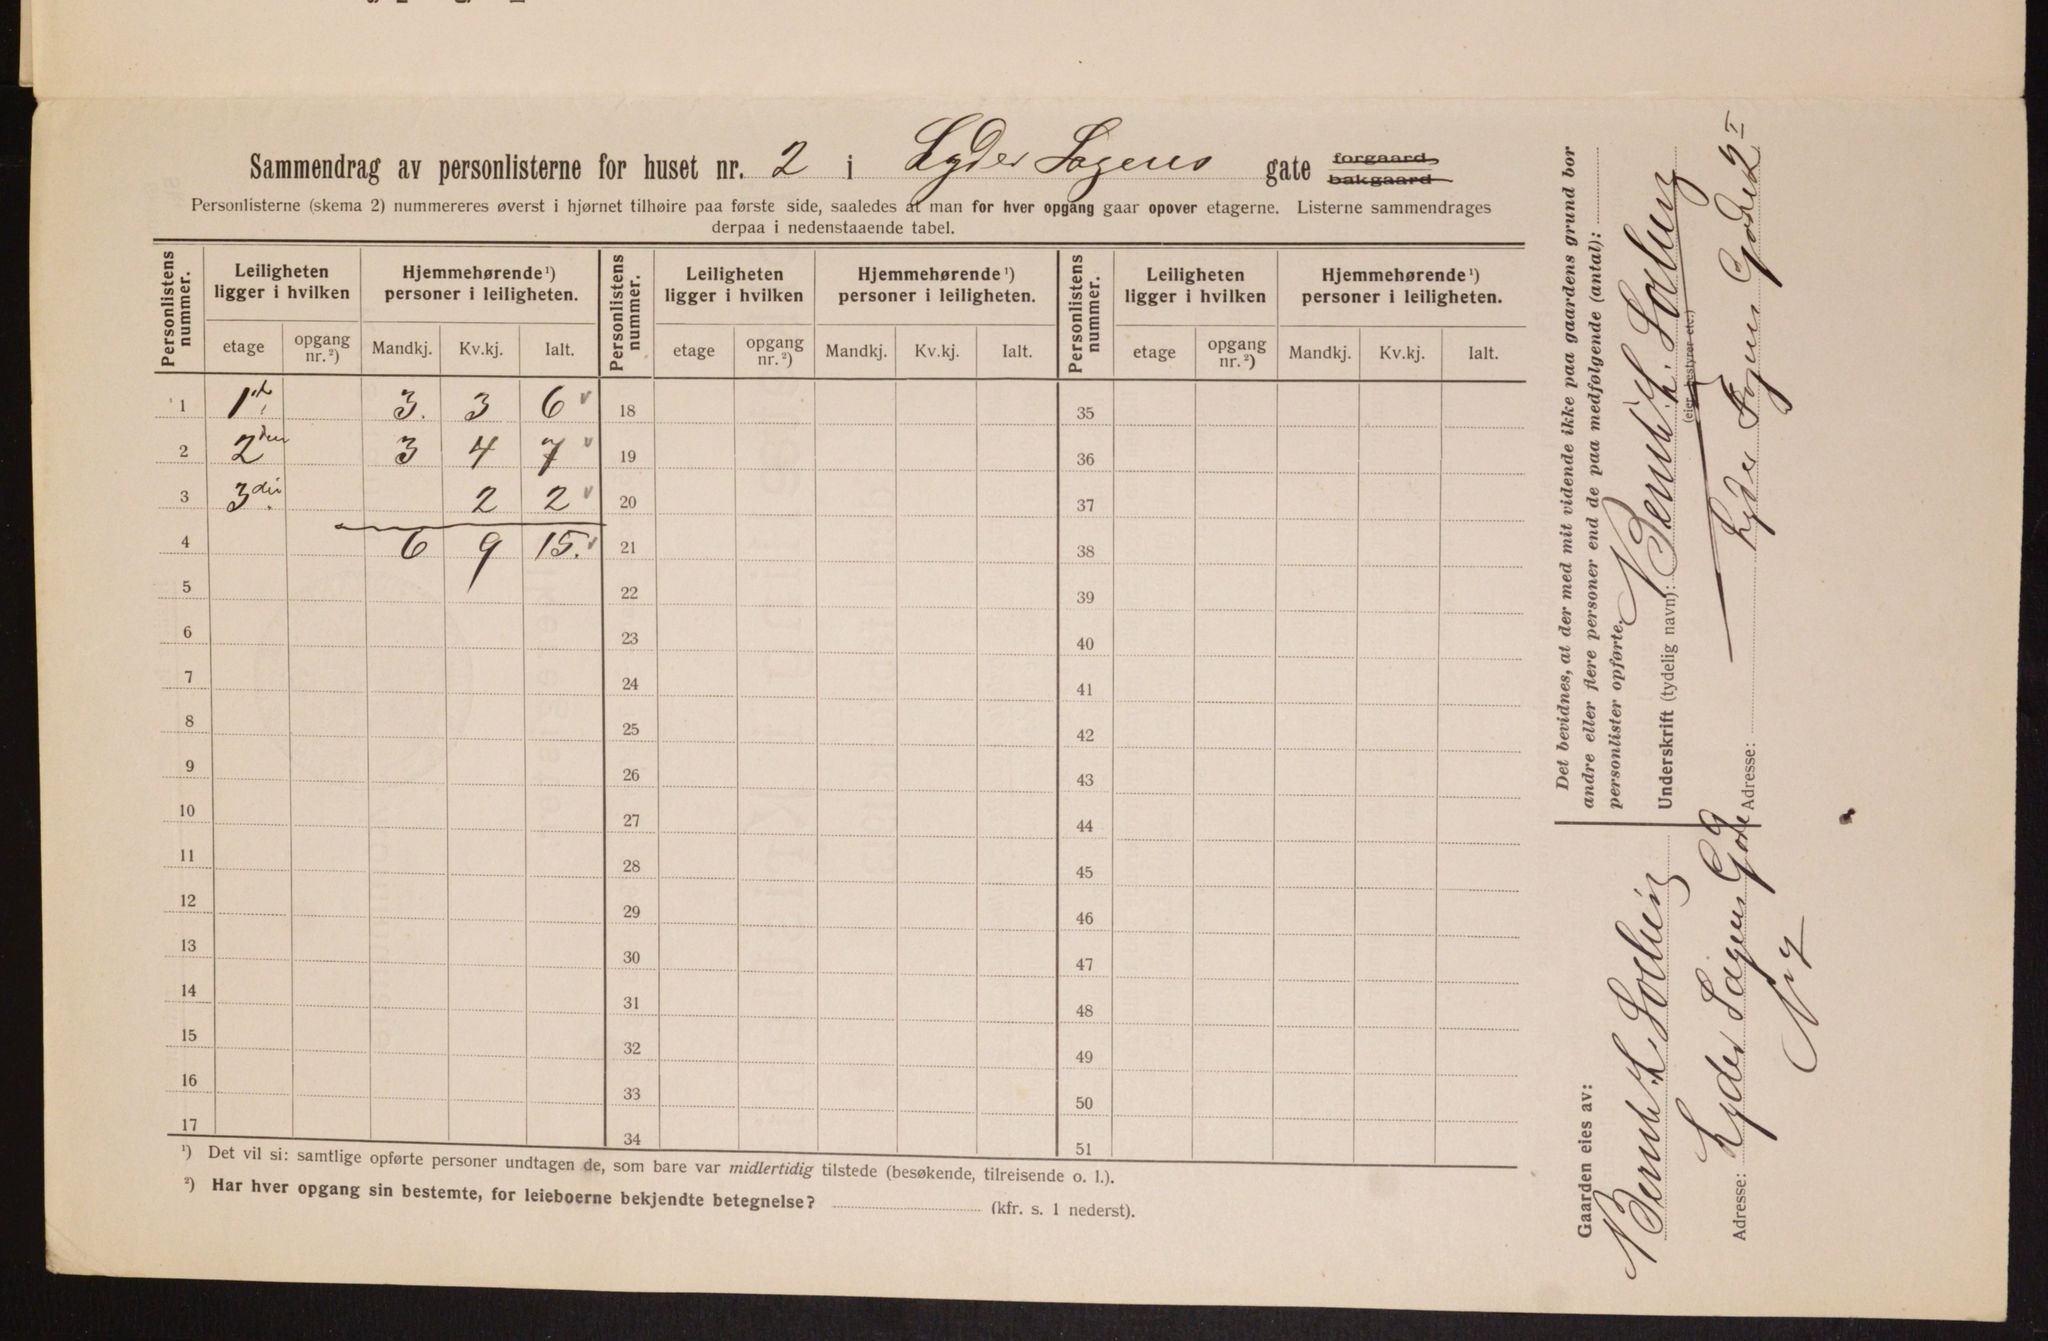 Sammendrag av personlisterne for huset nr. 2 i Lyder Sagens gate forgaard bakgaard
Personlisterne (skema 2) nummereres øverst i hjørnet tilhøire paa første side, saaledes at man for hver opgang gaar opover etagerne. Listerne sammendrages
derpaa i nedenstaaende tabel.
Personlistens nummer. Leiligheten ligger i hvilken Hjemmehørende ¹) personer i leiligheten. Personlistens nummer. Leiligheten ligger i hvilken Hjemmehørende ¹) personer i leiligheten. Personlistens nummer. Leiligheten ligger i hvilken Hjemmehørende ¹) personer i leiligheten.
etage opgang nr. ²) Mandkj. Kv.kj. Ialt. etage opgang nr. ²) Mandkj. Kv.kj. Ialt. etage opgang nr. ²) Mandkj. Kv.kj. Ialt.
1 1ste 3. 3 6 18 35
2 2den 3 4 7 19 36
3 3die 2 2 20 37
4 6 9 15. 21 38
5 22 39
6 23 40
7 24 41
8 25 42
9 26 43
10 27 44
11 28 45
12 29 46
13 30 47
14 31 48
15 32 49
16 33 50
17 34 51
¹) Det vil si: samtlige opførte personer undtagen de, som bare var midlertidig tilstede (besøkende, tilreisende o. l.).
²) Har hver opgang sin bestemte, for leieboerne bekjendte betegnelse? (kfr. s. 1 nederst).
Det bevidnes, at der med mit vidende ikke paa gaardens grund bor
andre eller flere personer end de paa medfølgende (antal):
personlister opførte.
Underskrift (tydelig navn):
(eier, bestyrer etc.)
Adresse: Lyder Sagens Gade 2 I
Gaarden eies av:
Adresse: Lyder Sagens Gade
№ 2